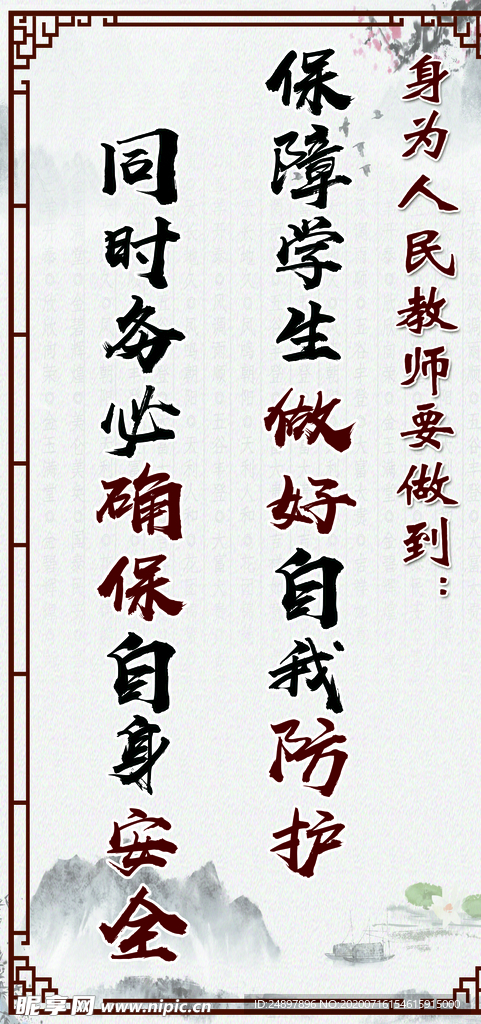 身为人民教师要做到：
保障学生做好自我防护
同时务必确保自身安全
昵享网 www.nipic.cn
ID:24897896 NO:20200716154615915000